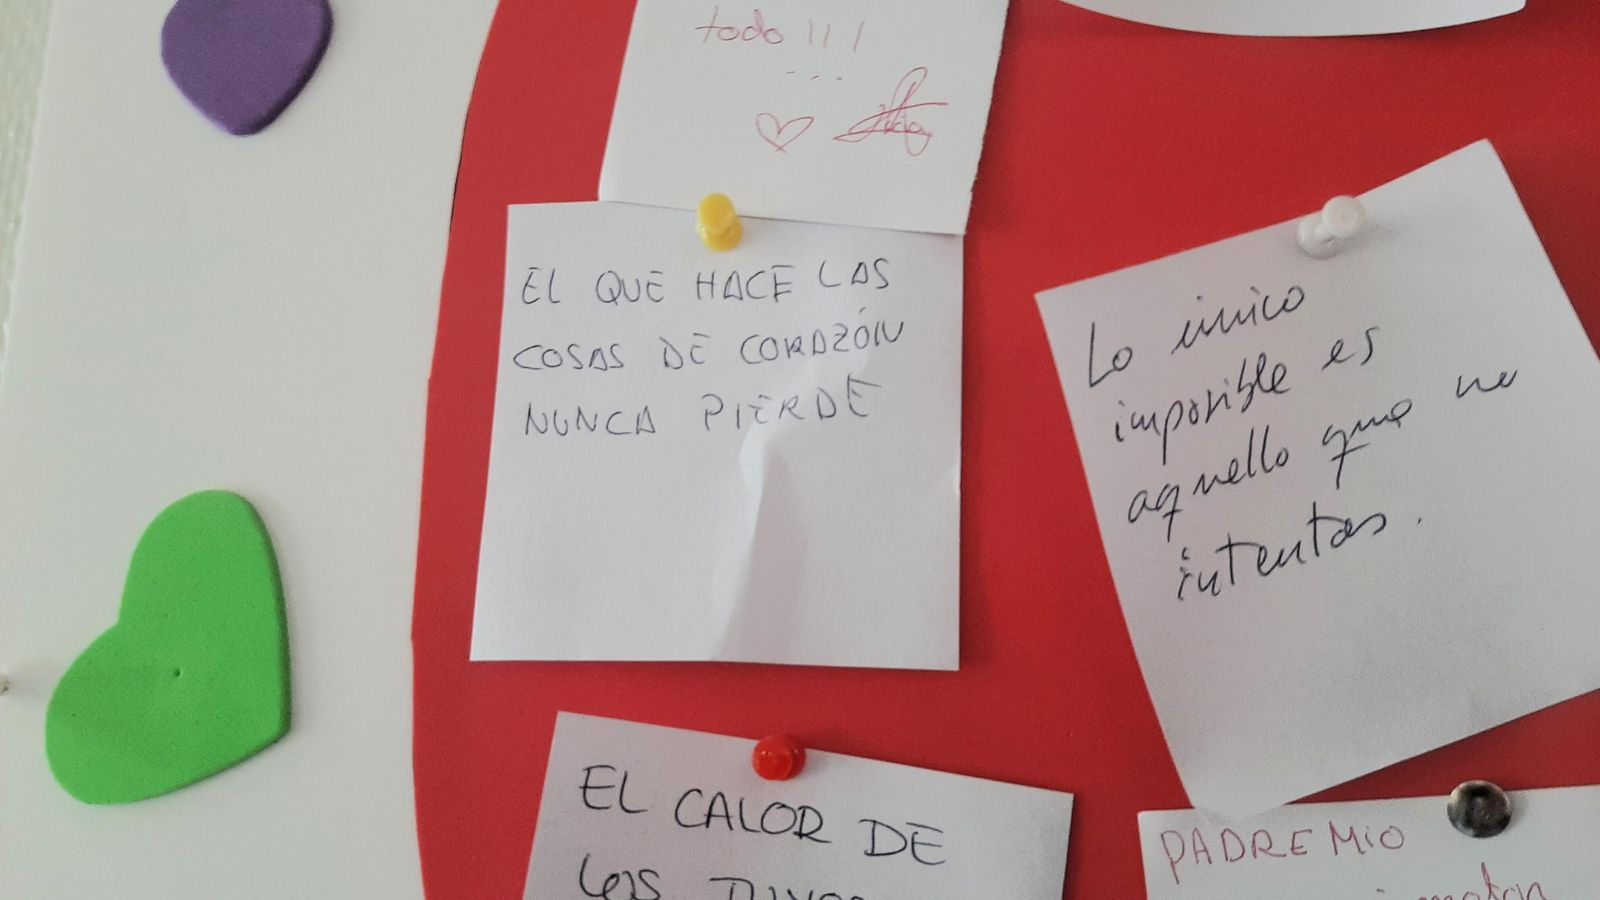 todo!!!
EL QUE HACE LAS
COSAS DE CORAZÓN
NUNCA PIERDE
Lo único
imposible es
aquello que no
intentas.
EL CALOR DE
LOS
PADRE MIO